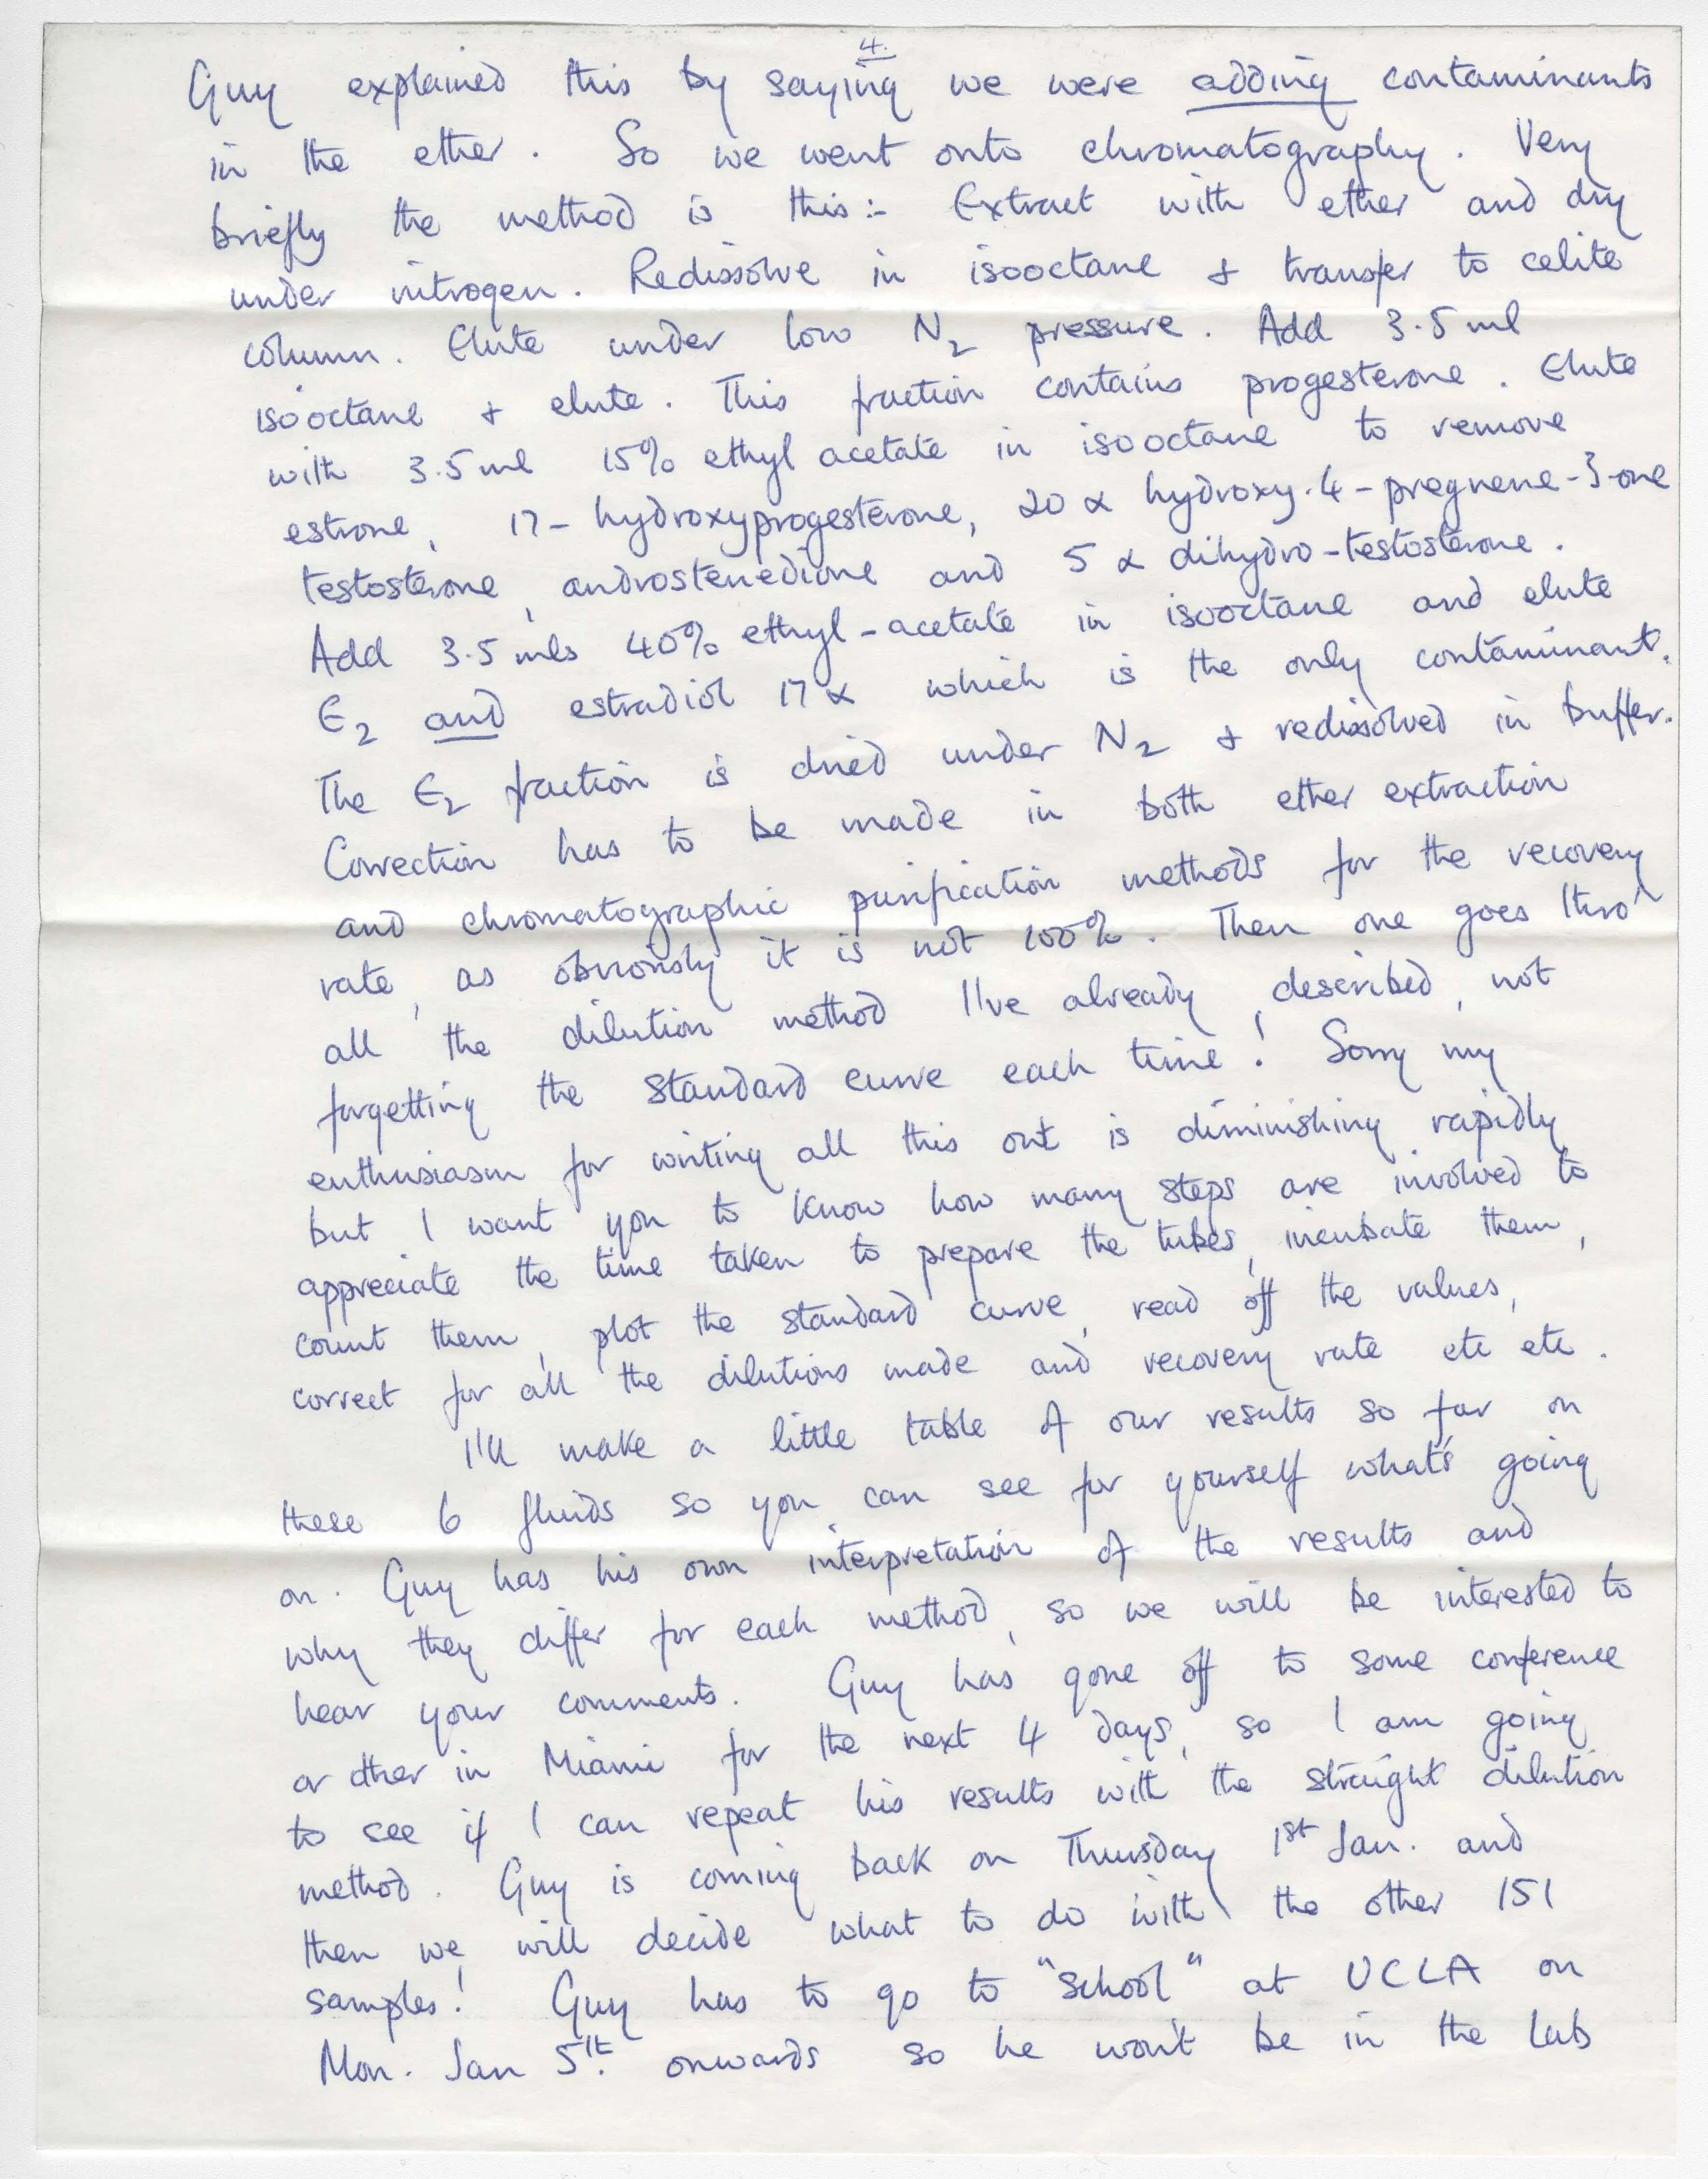 4.
Guy explained this by saying we were adding contaminants
in the ether. So we went onto chromatography. Very
briefly the method is this:- Extract with ether and dry
under nitrogen. Redissolve in isooctane & transfer to celite
column. Elute under low N2 pressure. Add 3.5 ml
isooctane & elute. This fraction contains progesterone. Elute
with 3.5 ml 15% ethyl acetate in isooctane to remove
estrone, 17-hydroxyprogesterone, 20 α hydroxy-4-pregnene-3-one
testosterone, androstenedione and 5 α dihydro-testosterone.
Add 3.5 mls 40% ethyl-acetate in isooctane and elute
E2 and estradiol 17 α which is the only contaminant.
The E2 fraction is dried under N2 & redissolved in buffer.
Correction has to be made in both ether extraction
and chromatographic purification methods for the recovery
rate, as obviously it is not 100%. Then one goes thro'
all the dilution method I've already described, not
forgetting the standard curve each time! Sorry my
enthusiasm for writing all this out is diminishing rapidly
but I want you to know how many steps are involved to
appreciate the time taken to prepare the tubes, incubate them,
count them, plot the standard curve, read off the values,
correct for all the dilutions made and recovery rate etc etc.
I'll make a little table of our results so far on
these 6 fluids so you can see for yourself what's going
on. Guy has his own interpretation of the results and
why they differ for each method, so we will be interested to
hear your comments. Guy has gone off to some conference
or other in Miami for the next 4 days, so I am going
to see if I can repeat his results with the straight dilution
method. Guy is coming back on Thursday 1st Jan. and
then we will decide what to do with the other 151
samples! Guy has to go to "school" at UCLA on
Mon. Jan 5th. onwards so he won't be in the lab